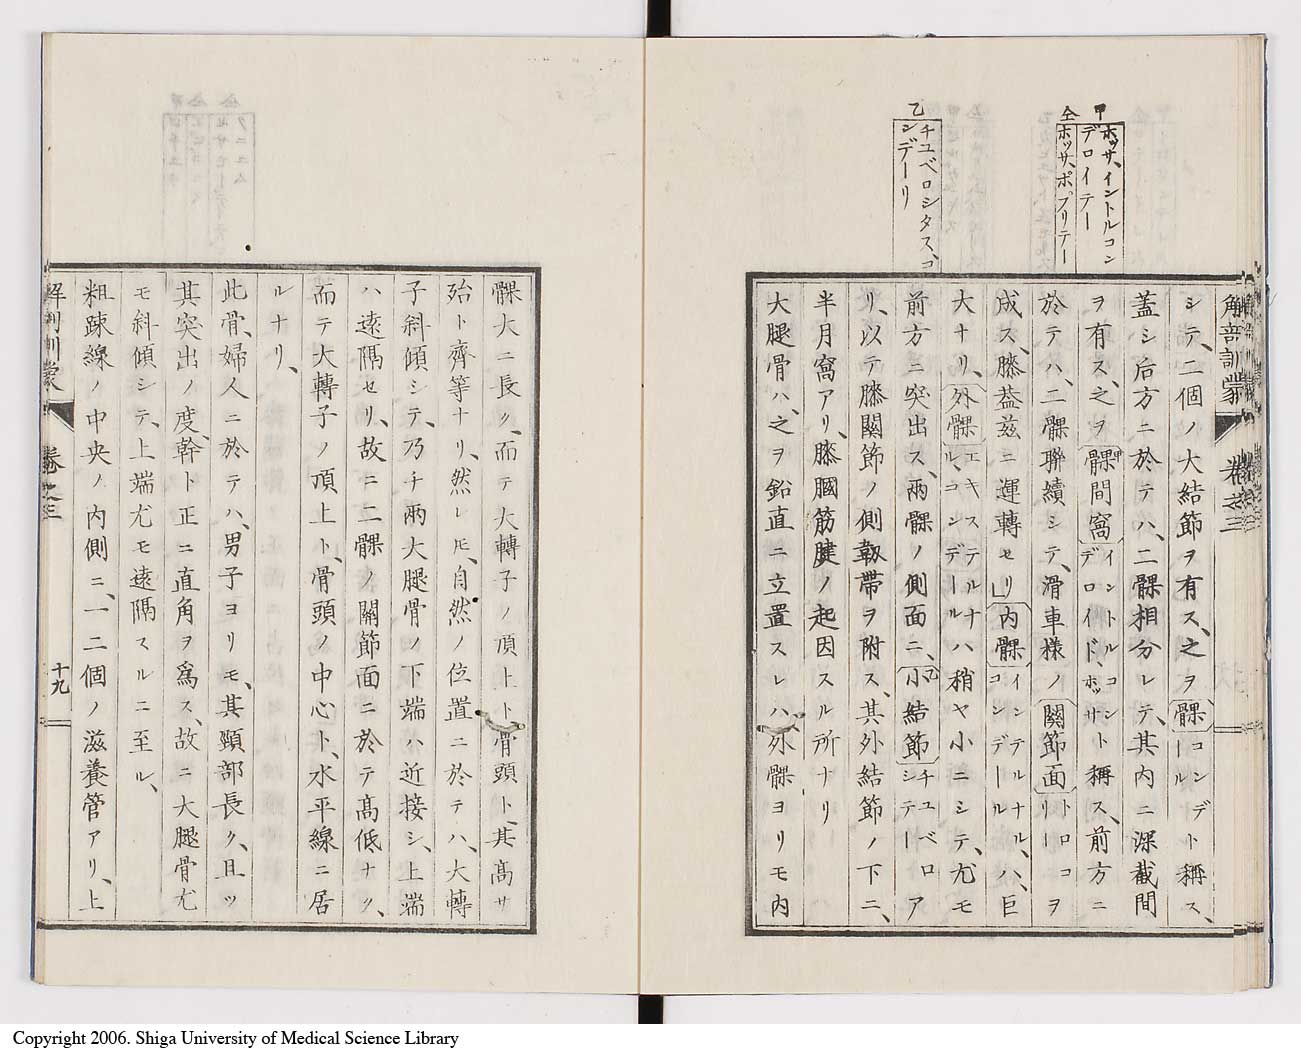 甲
ホッサ、イントルコン
デロイテー
仝
ホッサ、ポプリテー
乙
チユベロシタス、コ
ンデーリ
解剖訓蒙
卷之三
シテ、二個ノ大結節ヲ有ス、之ヲ髁コンデールト稱ス、
蓋シ后方ニ於テハ、二髁相分レテ、其内ニ深截間
ヲ有ス、之ヲ髁間窩イントルコンデロイド、ホッサト稱ス、前方ニ
於テハ、二髁聯續シテ、滑車様ノ關節面トロコリーヲ
成ス、膝蓋玆ニ運轉セリ」内髁インテルナル、コンデールハ、巨
大ナリ、外髁エキステルナル、コンデールハ稍ヤ小ニシテ、尤モ
前方ニ突出ス、兩髁ノ側面ニ、小結節チユベロアシテー
リ、以テ膝關節ノ側韌帶ヲ附ス、其外結節ノ下ニ、
半月窩アリ、膝膕筋腱ノ起因スル所ナリ
大腿骨ハ、之ヲ鉛直ニ立置スレハ、外髁ヨリモ内
髁大ニ長ク、而テ大轉子ノ頂上ト、骨頭ト、其髙サ
殆ト齊等ナリ、然レ𪜈、自然ノ位置ニ於テハ、大轉
子斜傾シテ、乃チ兩大腿骨ノ下端ハ近接シ、上端
ハ遠隅セリ、故ニ二髁ノ關節面ニ於テ髙低ナク、
而テ大轉子ノ頂上ト、骨頭ノ中心ト、水平線ニ居
ルナリ、
此骨、婦人ニ於テハ、男子ヨリモ、其頸部長ク、且ツ
其突出ノ度、幹ト正ニ直角ヲ爲ス、故ニ大腿骨尤
モ斜傾シテ、上端尤モ遠隅スルニ至ル、
粗踈線ノ中央ノ内側ニ、一二個ノ滋養管アリ、上
解剖訓蒙
卷之三
十九
Copyright 2006. Shiga University of Medical Science Library